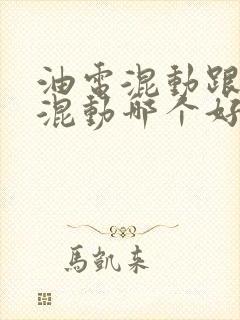 油電混動跟
混動哪个好
馬凱來